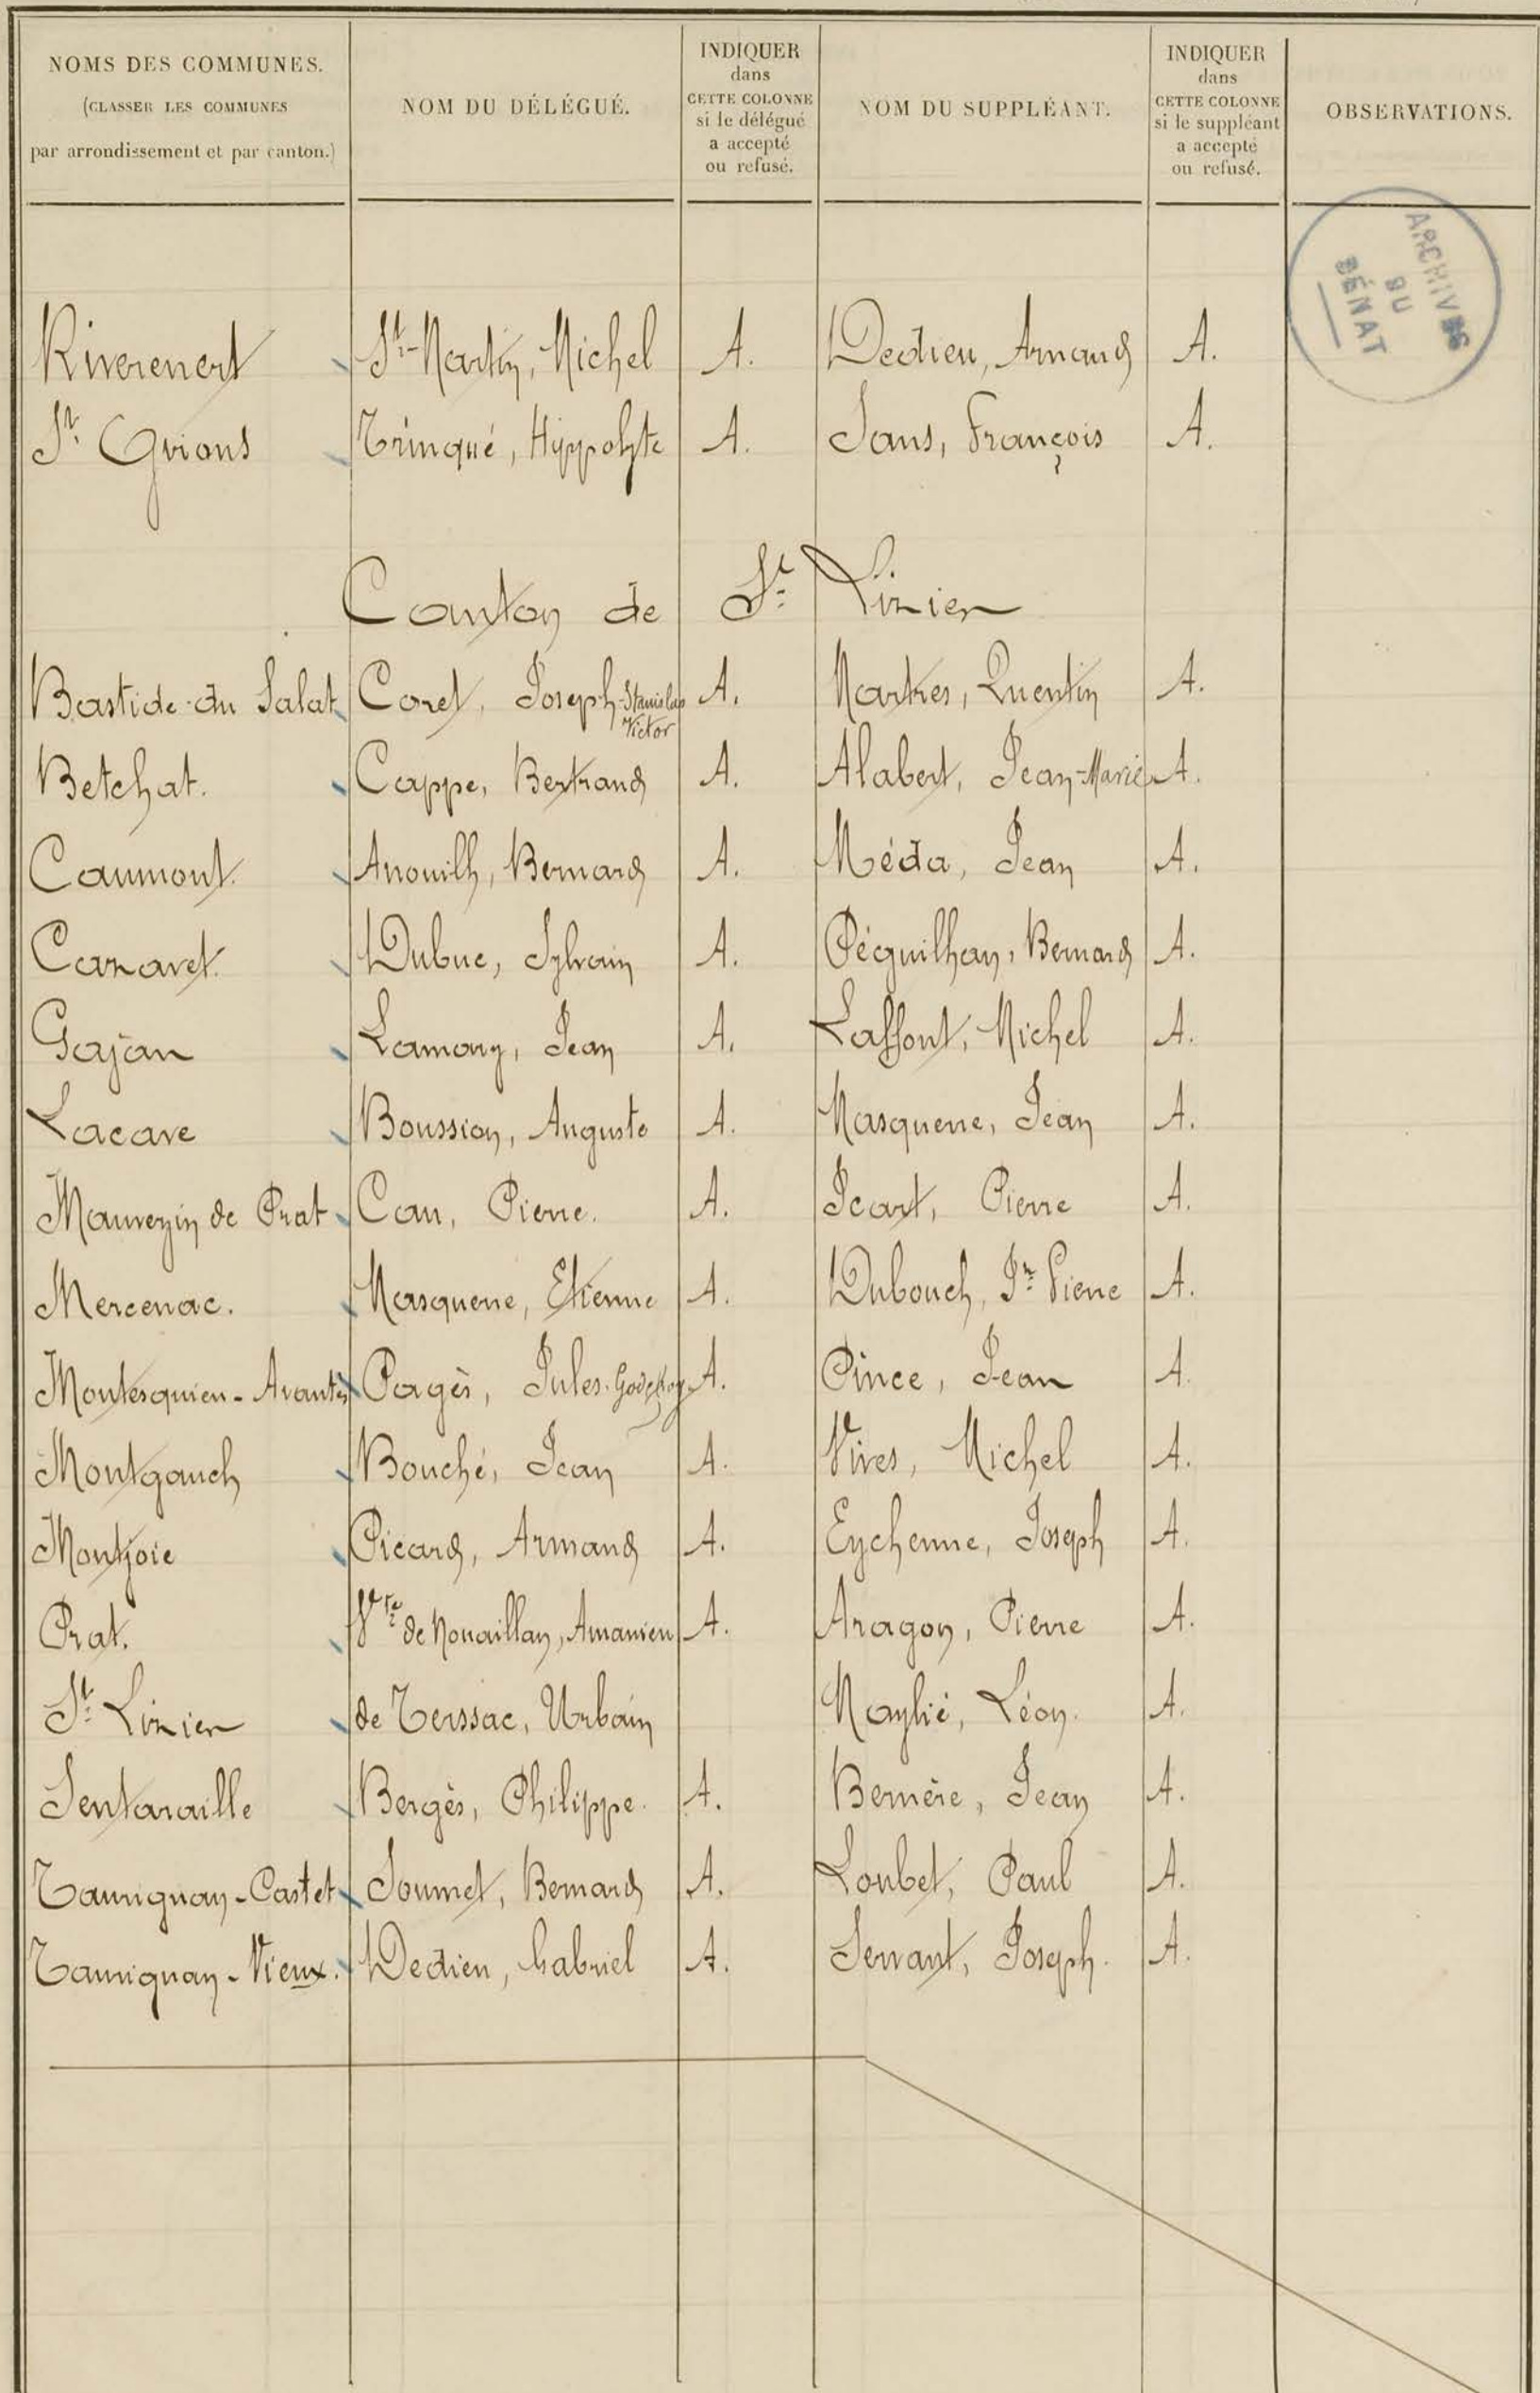 NOMS DES COMMUNES.
(CLASSER LES COMMUNES
par arrondissement et par canton.)
NOM DU DÉLÉGUÉ.
INDIQUER
dans
CETTE COLONNE
si le délégué
a accepté
ou refusé.
NOM DU SUPPLÉANT.
INDIQUER
dans
CETTE COLONNE
si le suppléant
a accepté
ou refusé.
OBSERVATIONS.
ARCHIVES
DU
SÉNAT
Riverenert St-Martin, Michel A. Dedieu, Armand A.
St Girons Trinqué, Hippolyte A. Sans, François A.
Canton de St Lizier
Bastide-du Salat Caret, Joseph-Stanislas A. Martres, Quentin A.
Victor
Betchat. Cappe, Bertrand A. Alabert, Jean-Marie A.
Caumont. Anouilh, Bernard A. Méda, Jean A.
Cazavet. Dubuc, Sylvain A. Péguilhan, Bernard A.
Gajan Lamary, Jean A. Laffont, Michel A.
Lacave Boussion, Auguste A. Masquere, Jean A.
Mauvezin de Prat Cau, Pierre. A. Icart, Pierre A.
Mercenac. Masquere, Etienne A. Dubouch, Jn Pierre A.
Montesquieu-Avantès Pagès, Jules-Godefroy A. Pince, Jean A.
Montgauch Bouché, Jean A. Vives, Michel A.
Montjoie Picard, Armand A. Eychenne, Joseph A.
Prat. Vte de Nouaillan, Amanieu A. Aragon, Pierre A.
St Lizier de Terssac, Urbain Maylié, Léon. A.
Sentaraille Bergès, Philippe. A. Bernère, Jean A.
Taurignan-Castet Soumet, Bernard A. Loubet, Paul A.
Taurignan-Vieux. Dedieu, Gabriel A. Servant, Joseph. A.